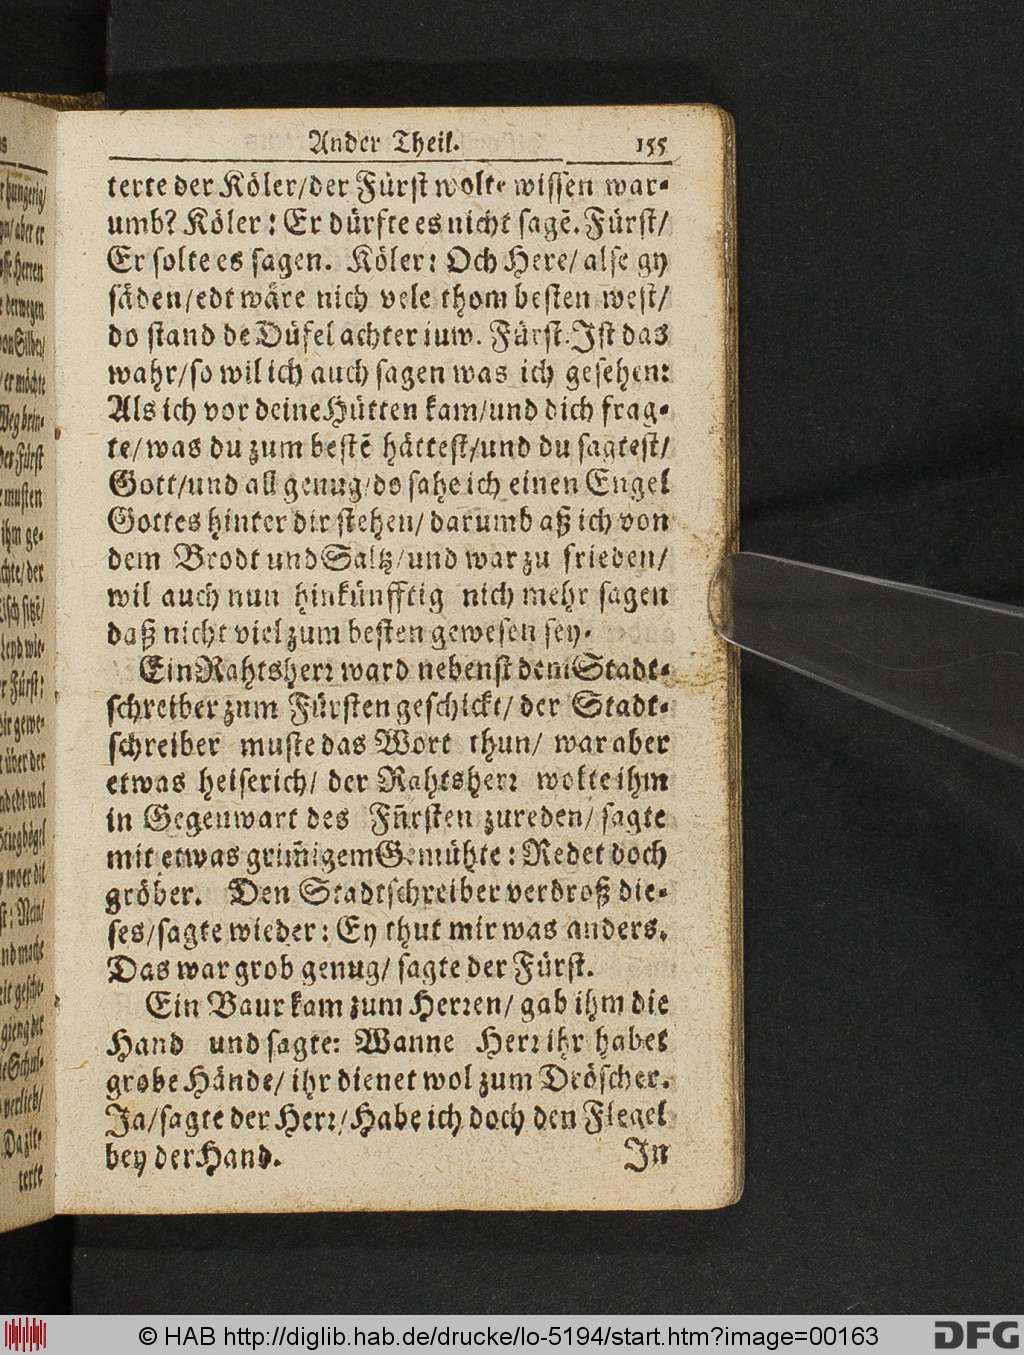 Ander Theil. 155
terte der Köler/der Fürst wolte wissen war-
umb? Köler: Er dürfte es nicht sagē. Fürst/
Er solte es sagen. Köler: Och Here/ alse gy
säden/edt wäre nich vele thom besten west/
do stand de Düfel achter iuw. Fürst. Ist das
wahr/so wil ich auch sagen was ich gesehen:
Als ich vor deine Hütten kam/und dich frag-
te/ was du zum bestē hättest/und du sagtest/
Gott/und all genug/do sahe ich einen Engel
Gottes hinter dir stehen/ darumb aß ich von
dem Brodt und Saltz/und war zu frieden/
wil auch nun hinkünfftig nich mehr sagen
daß nicht viel zum besten gewesen sey.
Ein Rahtsherr ward nebenst dem Stadt-
schreiber zum Fürsten geschickt/ der Stadt-
schreiber muste das Wort thun/ war aber
etwas heiserich/ der Rahtsherr wolte ihm
in Gegenwart des Fürsten zureden/ sagte
mit etwas grim̄igem Gemühte: Redet doch
gröber. Den Stadtschreiber verdroß die-
ses/sagte wieder: Ey thut mir was anders.
Das war grob genug/ sagte der Fürst.
Ein Baur kam zum Herren/ gab ihm die
Hand und sagte: Wanne Herr ihr habet
grobe Hände/ ihr dienet wol zum Dröscher.
Ja/sagte der Herr/Habe ich doch den Flegel
bey der Hand. In
© HAB http://diglib.hab.de/drucke/lo-5194/start.htm?image=00163
DFG